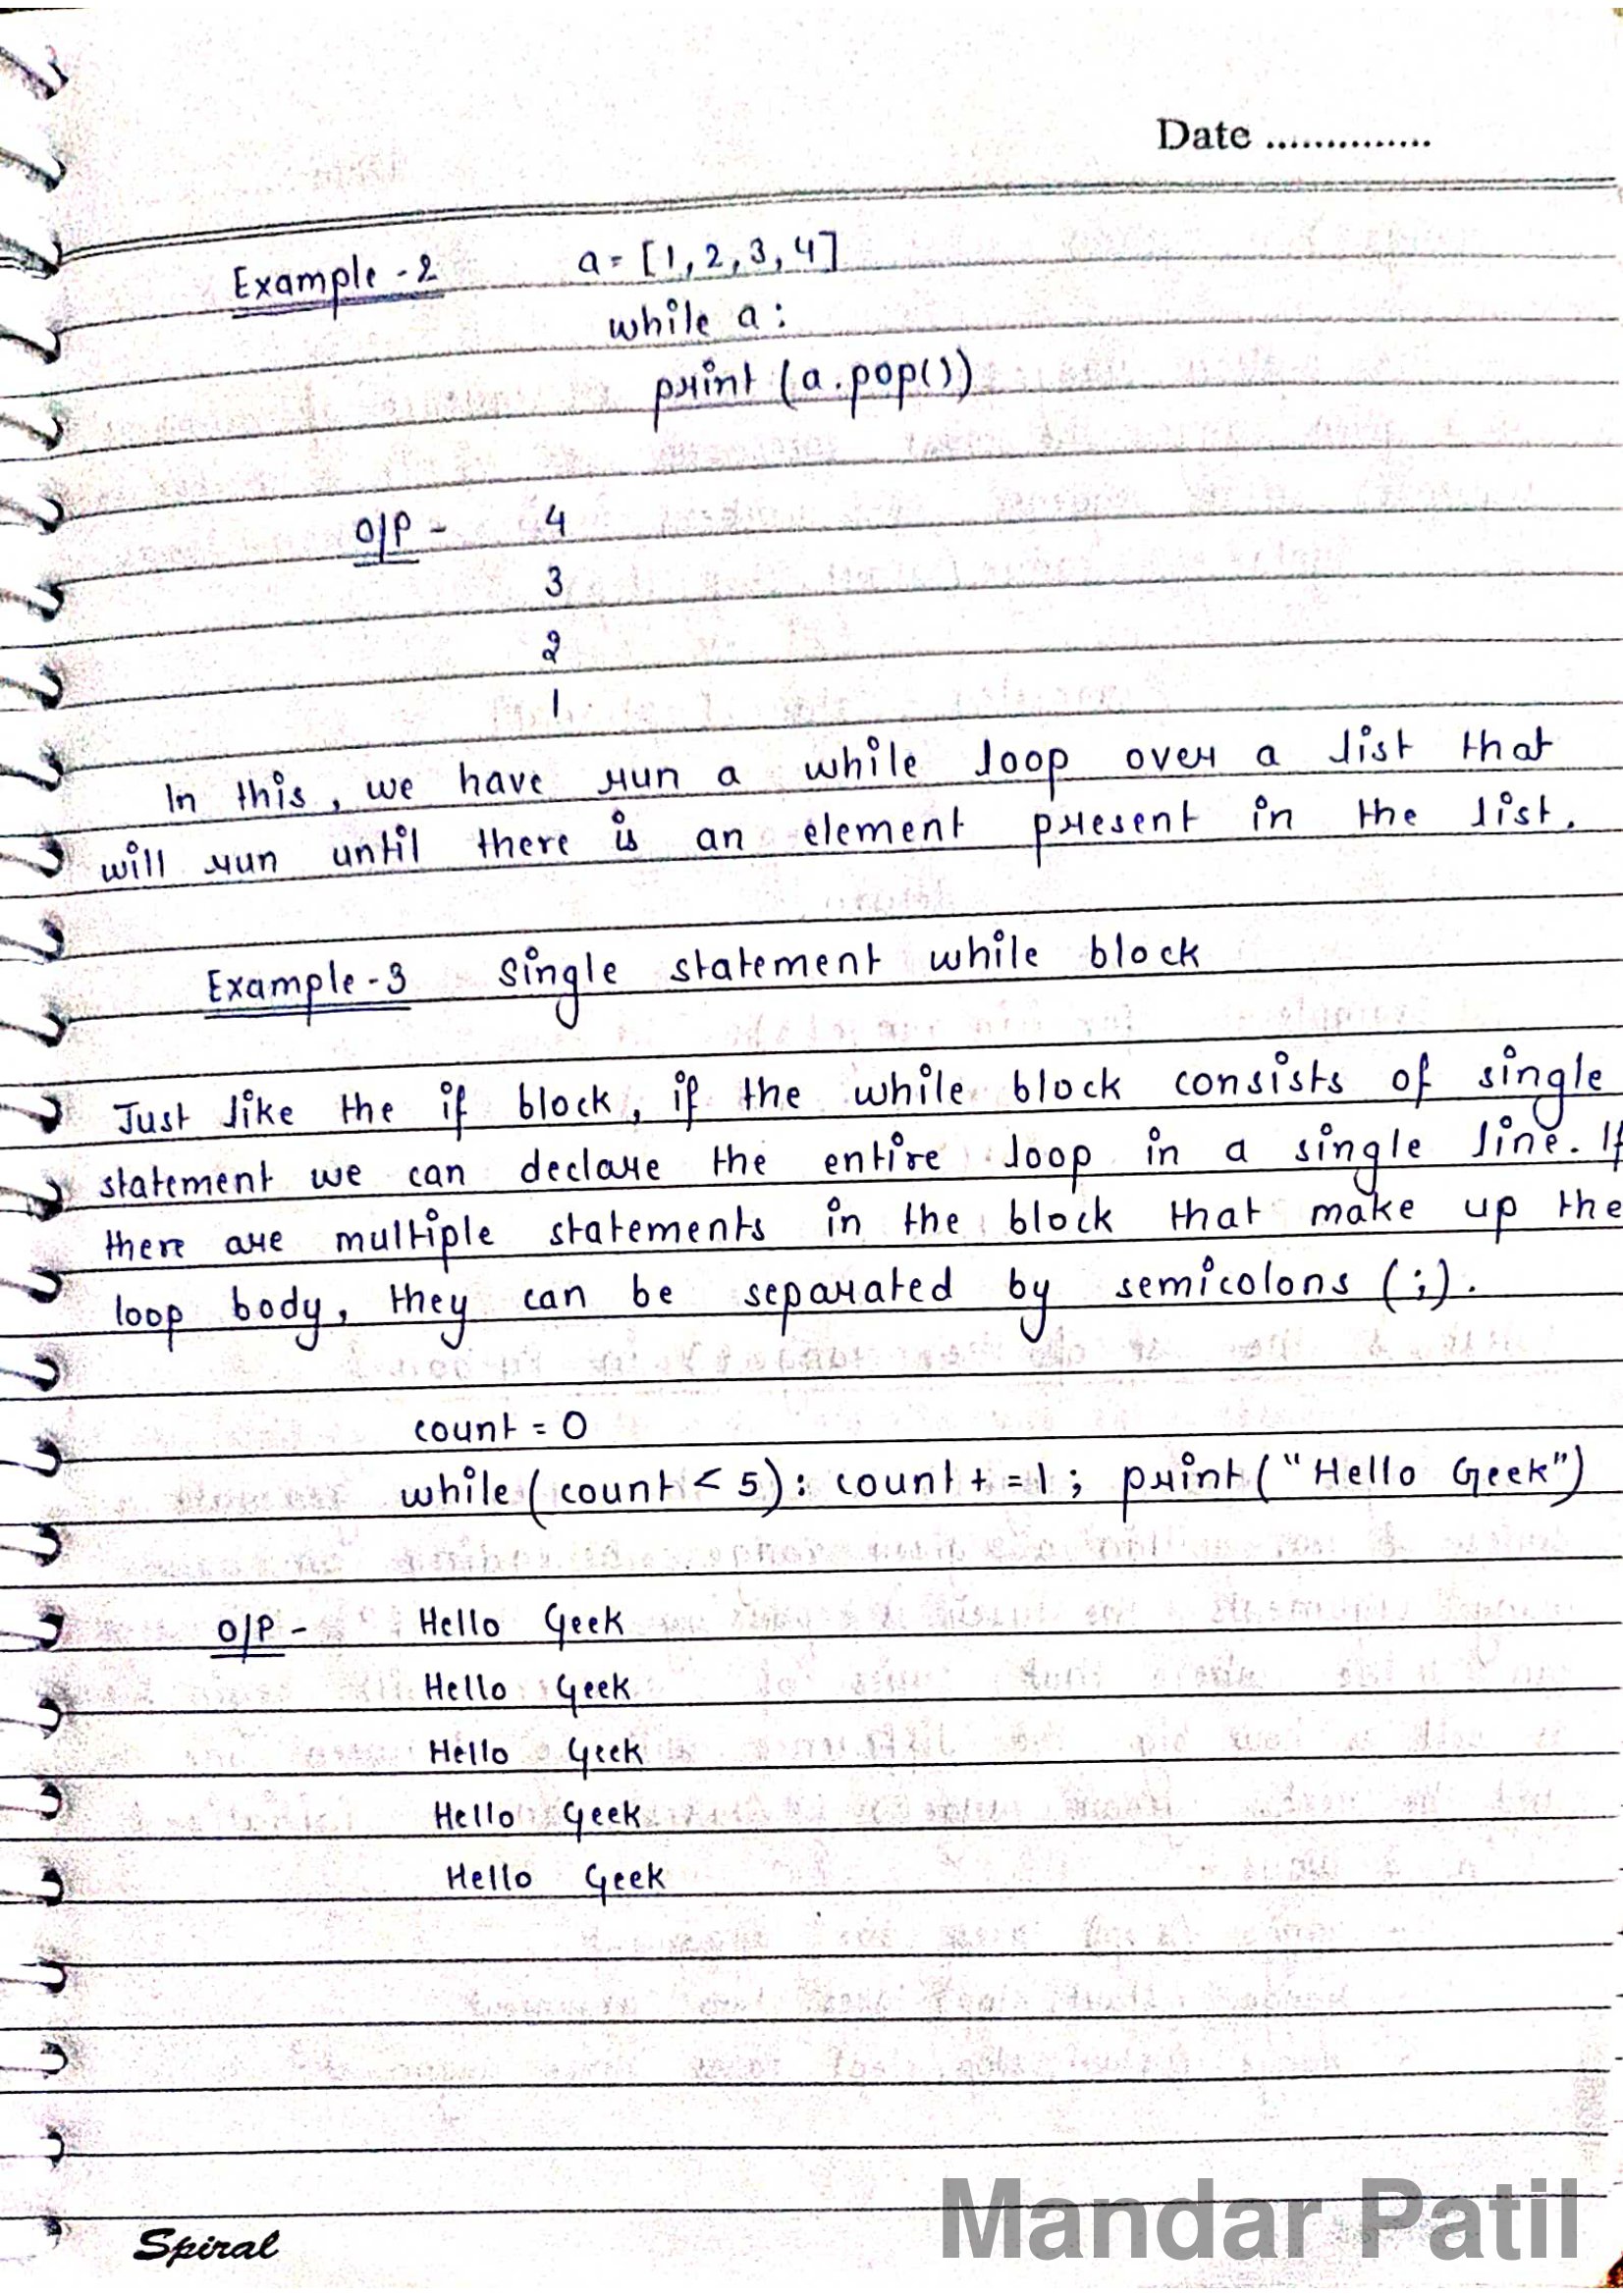 Date ..............
Example - 2 a = [1, 2, 3, 4]
while a :
print (a.pop())
O/P - 4
3
2
1
In this, we have run a while loop over a list that
will run until there is an element present in the list.
Example - 3 Single statement while block
Just like the if block, if the while block consists of single
statement we can declare the entire loop in a single line. If
there are multiple statements in the block that make up the
loop body, they can be separated by semicolons (;).
count = 0
while (count < 5) : count + = 1 ; print ("Hello Geek")
O/P - Hello Geek
Hello Geek
Hello Geek
Hello Geek
Hello Geek
Spiral
Mandar Patil